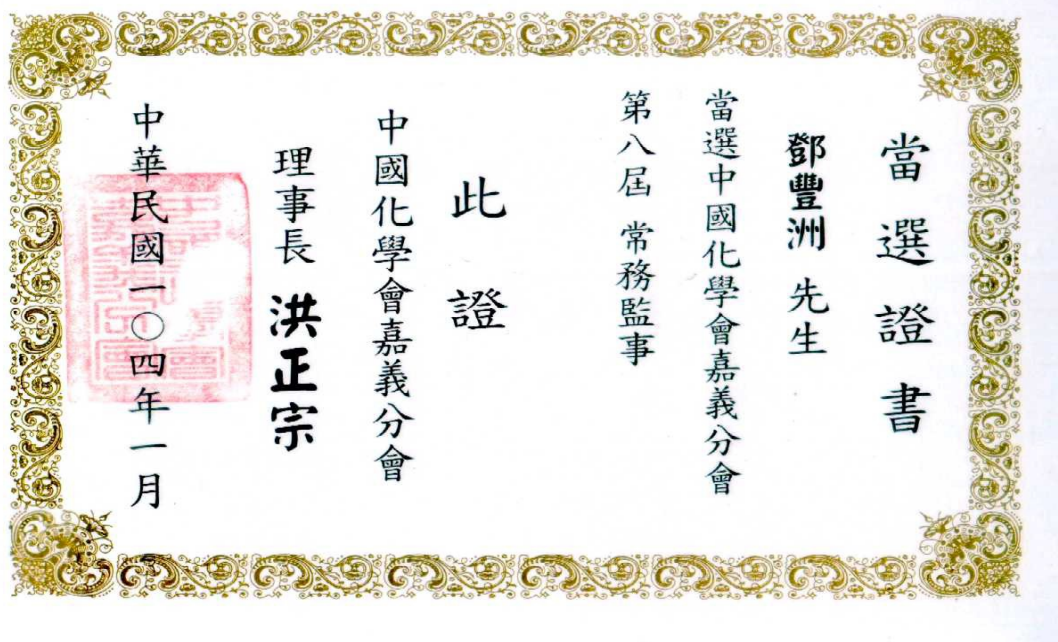 當選證書
鄧豐洲 先生
當選中國化學會嘉義分會
第八屆 常務監事
此證
中國化學會嘉義分會
理事長 洪正宗
中華民國一〇四年一月